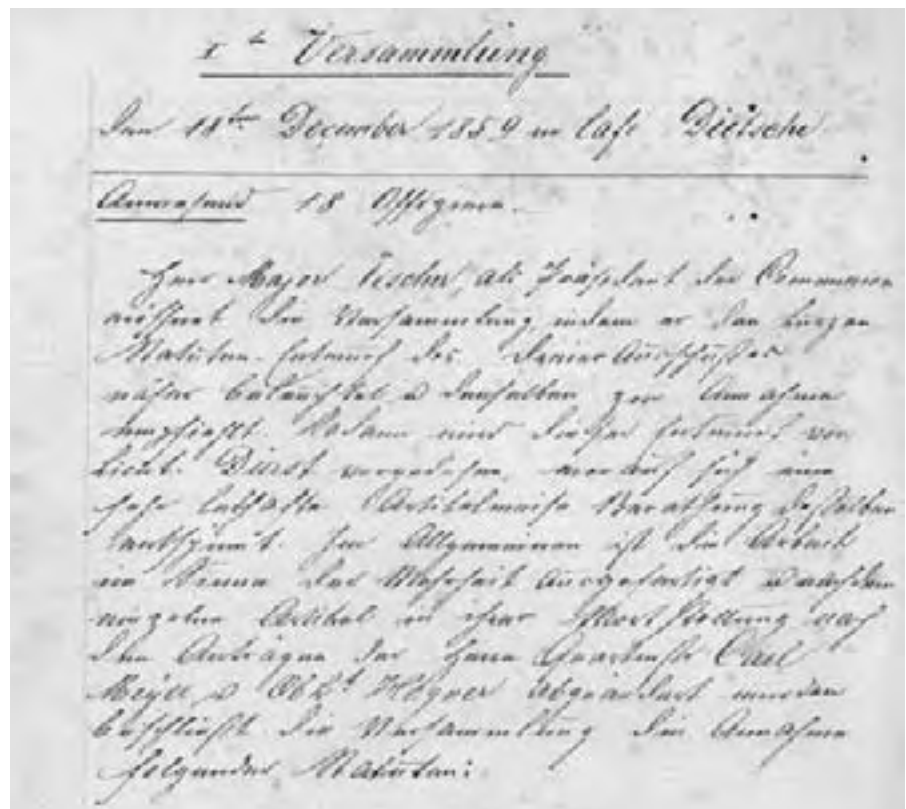 Ite Versammlung
den 18ten December 1859 im Café Dietsche
Anwesend 18 Offiziere.
Herr Major Vischer, als Präsident der Commission
eröffnet die Versammlung, indem er den kurzen
Statuten-Entwurf des Ausschusses
näher beleuchtet u denselben zur Annahme
empfiehlt. Sodann wird dieser Entwurf von
Lieut. vorgelesen, worauf sich eine
sehr lebhafte Artikelweise Berathung desselben
entspinnt. Im Allgemeinen ist die Arbeit
im Sinne der Mehrheit ausgefertigt u nachdem
einzelne Artikel in ihrer Wortstellung nach
den Anträgen der Herrn Quartiermstr Carl
u Obltt abgeändert wurden
beschliesst die Versammlung die Annahme
folgender Statuten: